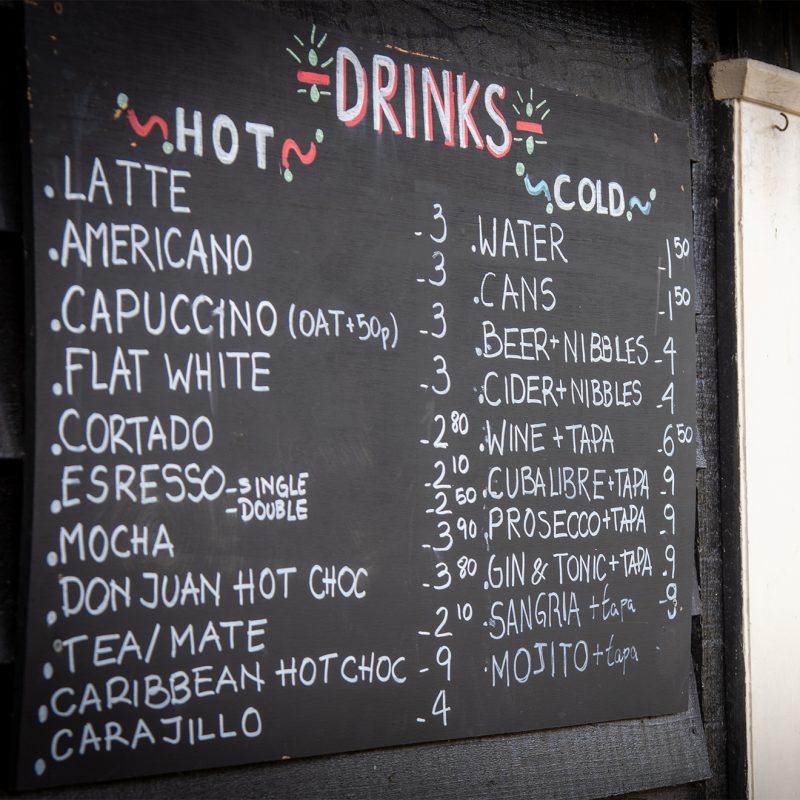 DRINKS
HOT
.LATTE -3
.AMERICANO -3
.CAPUCCINO (OAT+50p) -3
.FLAT WHITE -3
.CORTADO -2 80
.ESPRESSO -SINGLE -2 10
-DOUBLE -2 50
.MOCHA -3 90
.DON JUAN HOT CHOC -3 80
.TEA/MATE -2 10
.CARIBBEAN HOT CHOC -9
.CARAJILLO -4
COLD
.WATER -1 50
.CANS -1 50
.BEER+NIBBLES -4
.CIDER+NIBBLES -4
.WINE +TAPA -6 50
.CUBALIBRE+TAPA -9
.PROSECCO+TAPA -9
.GIN & TONIC+TAPA .9
.SANGRIA +tapa -9
.MOJITO +tapa